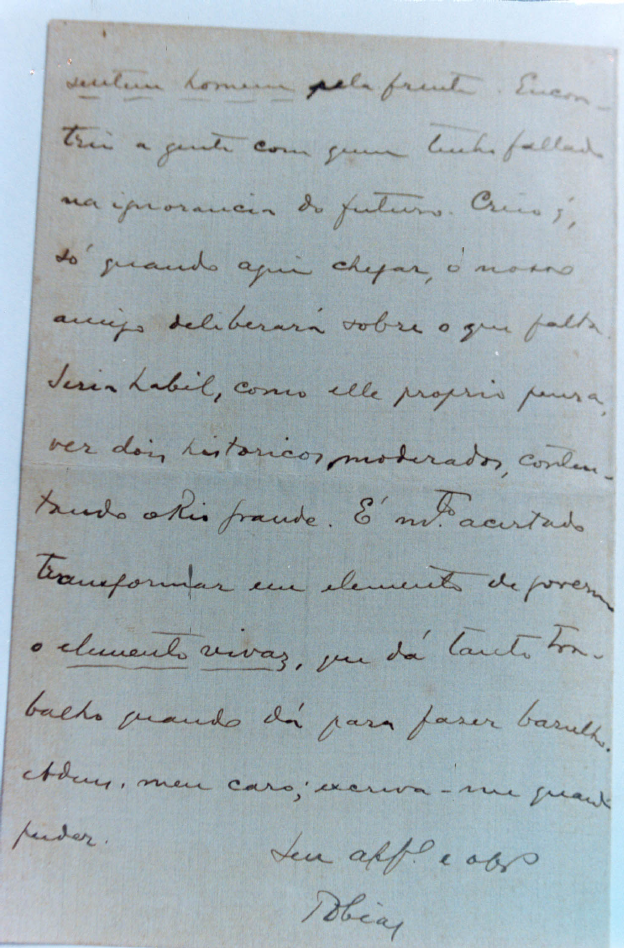 sentem homem pela frente. Encon-
trei a gente com quem tenho fallado
na ignorancia do futuro. Creio q,
só quando aqui chegar, o nosso
amigo deliberará sobre o que falta.
Seria habil, como elle proprio pensa,
ver dois historicos, moderados, conten-
tando o Rio Grande. É mto. acertado
transformar em elemento de governo
o elemento vivaz, que dá tanto tra-
balho quando dá para fazer barulho.
Adeus, meu caro; escreva-me quando
puder.
Seu affo. e obgo
Tobias